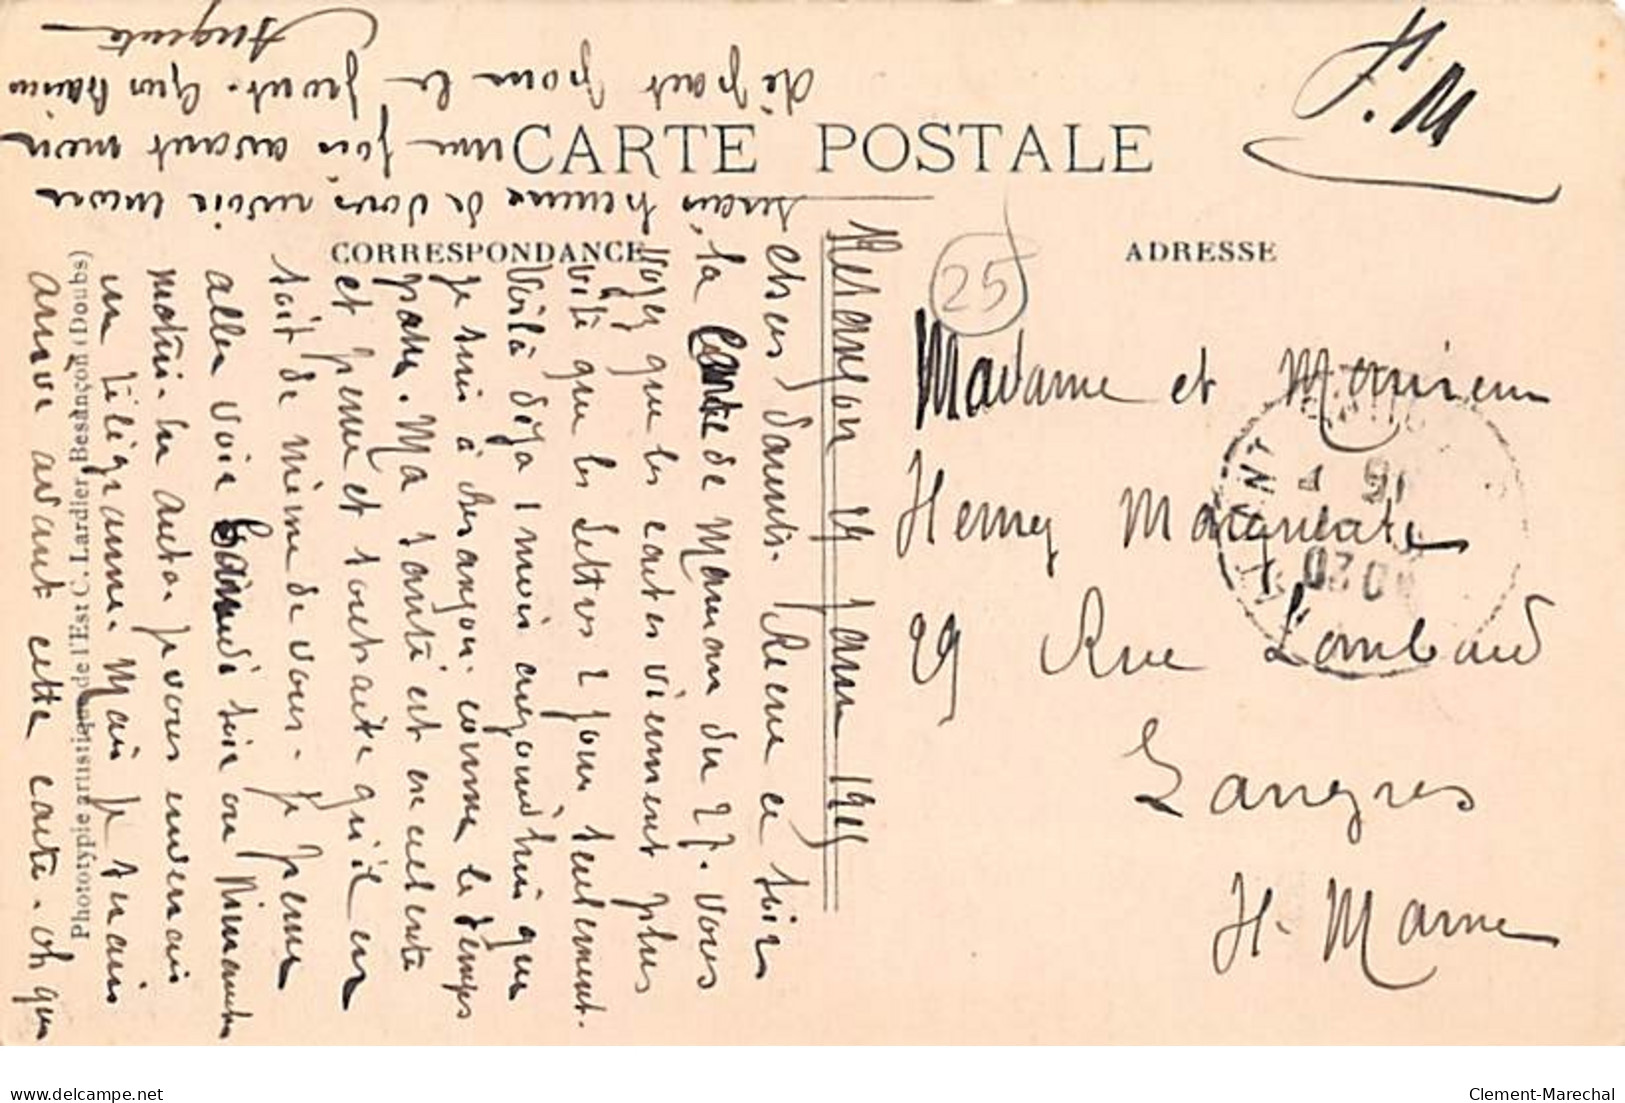 F. M
CARTE POSTALE
CORRESPONDANCE
ADRESSE
25
Madame et Monsieur
Henry
29 Rue Lombard
Langres
H. Marne
Besançon 29 Janv 1915
chers Parents. Reçu ce soir
la Carte de Maman du 27. Vous
voyez que les cartes viennent plus
vite que les lettres 2 jours seulement.
Voilà déja 1 mois aujourd'hui que
je suis à Besançon comme le temps
passe. Ma santé est excellente
et pense et souhaite qu'il en
soit de même de vous. Je pense
aller voir Samedi soir ou Dimanche
matin les autos je vous enverrais
un télégramme. Mais je serais
arrivé avant cette carte. Oh que
serais heureux de vous revoir encore
une fois avant mon
départ pour le front. Gros baisers
Photoypie artistique de l'Est C. Lardier, Besançon (Doubs)
delcampe.net
Clement-Marechal